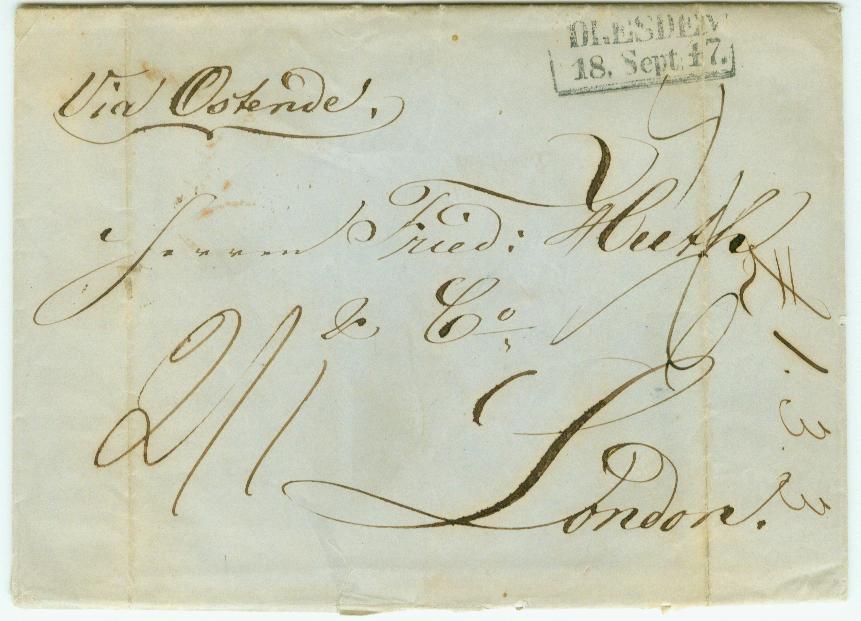 DRESDEN
18. Sept. 47.
Via Ostende.
Herren Fried: Huth
& Co
2/1
London.